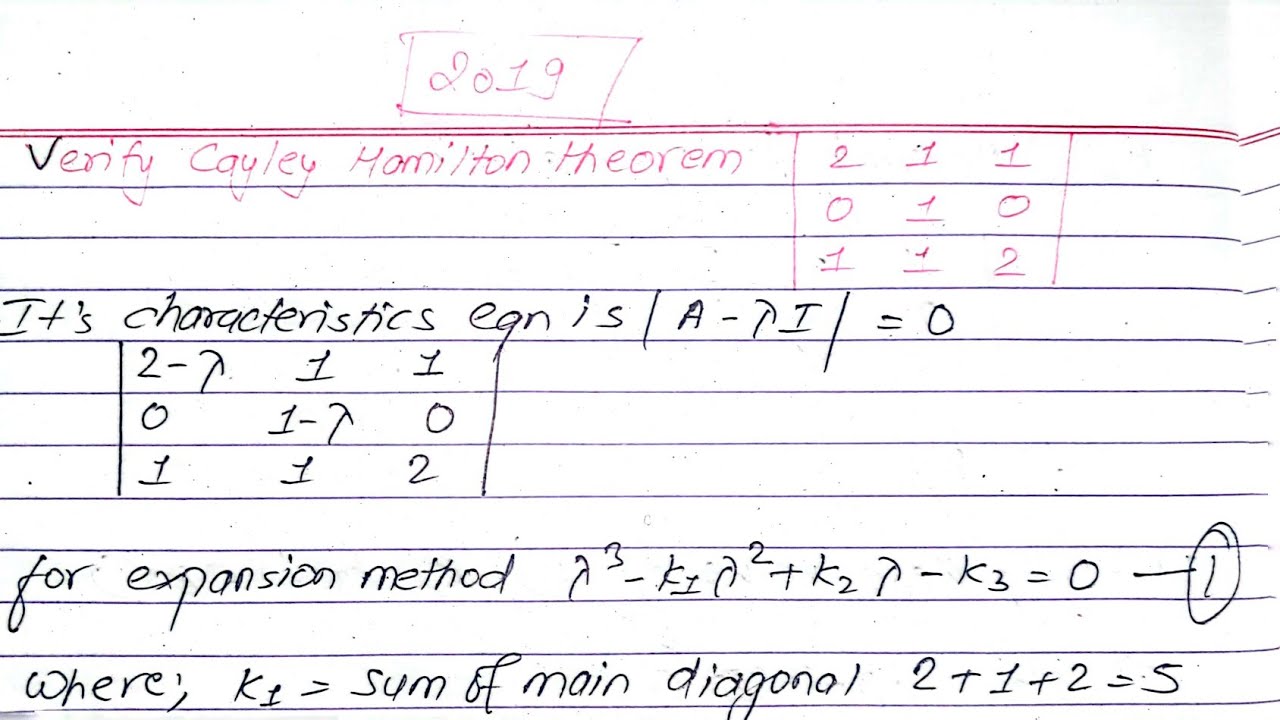 2019
Verify Cayley Hamilton theorem | 2 1 1 |
| 0 1 0 |
| 1 1 2 |
It's characteristics eqn is |A - λI| = 0
| 2-λ 1 1 |
| 0 1-λ 0 |
| 1 1 2 |
for expansion method λ³ - k₁λ² + k₂λ - k₃ = 0 — ①
where; k₁ = sum of main diagonal 2+1+2=5